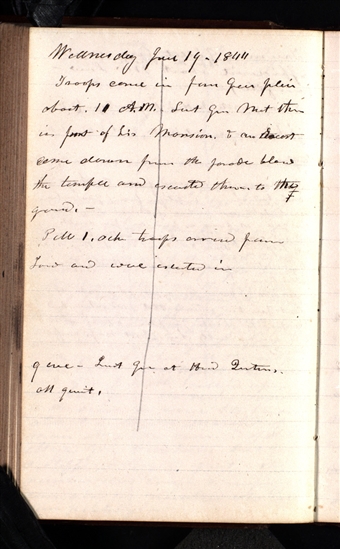 Wednesday June 19 - 1844
Troops come in from Green plain
about 11 A.M. Lieut Gen met them
in front of his Mansion, & an Escort
come down from the parade
the temple and escorted them to the
ground. -
P.M. 1, ock troops arrived from
Iowa and were escorted in
9 eve - Lieut Gen at Head Quters.
all quiet.